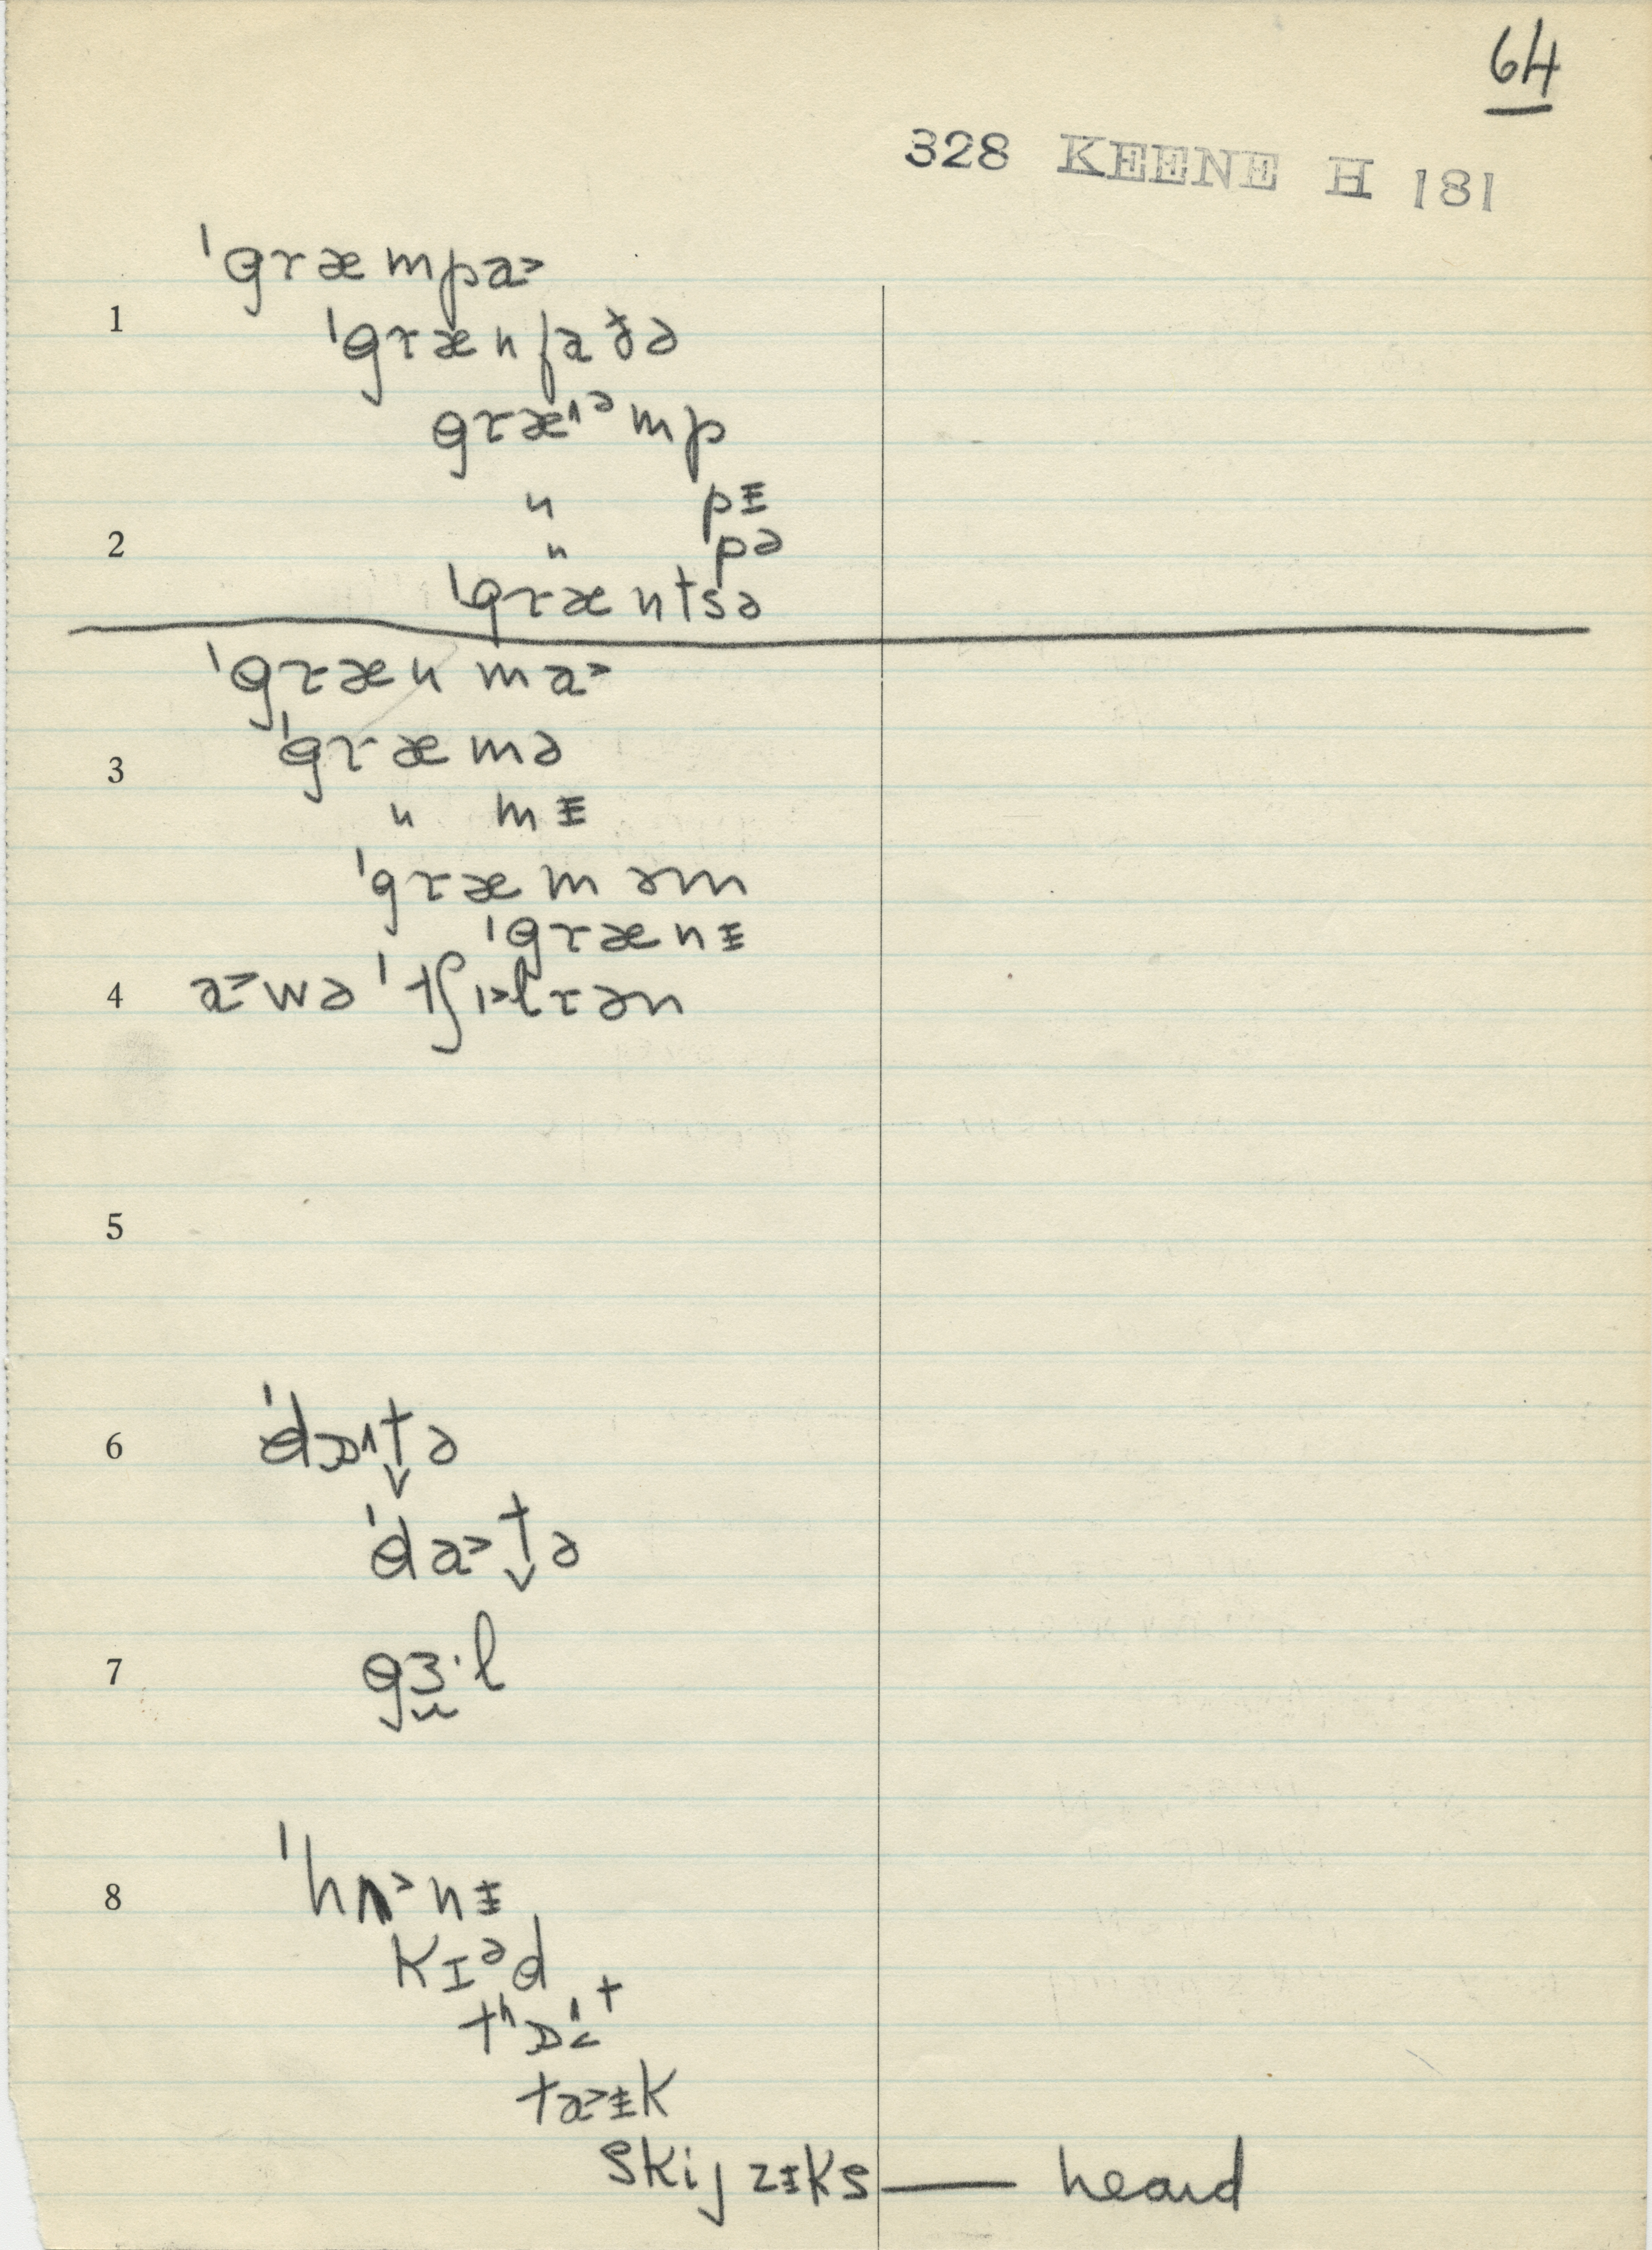 64
328 KEENE H 181
ˈgræmpa˃
1
ˈgrænfaðə
græ˄ᵊmp
〃 pɪ̵
2
〃 pə
ˈgræntsə
ˈgrænma˃
ˈgræmə
3
〃 mɪ̵
ˈgræməm
ˈgrænɪ̵
4 a˃wə ˈtʃɪ˃lrən
5
6 ˈdɒ˄t̬ə
ˈda˃t̬ə
7 gɜ·l
8 ˈhʌ˃nɪ̵
kɪᵊd
tʰɒt
ta˃ɪ̵k
skijzɪ̵ks — heard